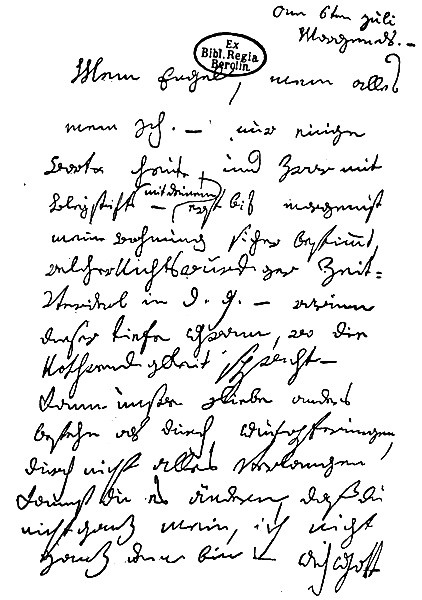 am 6ten juli
Morgends. —
Ex
Bibl. Regia
Berolin.
Mein Engel, mein alles
mein Ich. — nur einige
Worte heute, und zwar mit
Bleystift — (mit deinem) erst bis morgen ist
meine wohnung sicher bestimmt,
welcher Nichtswürdiger Zeit=
Verderb in d. g. — warum
dieser tiefe Gram, wo die
Nothwendigkeit spricht —
Kann unsre Liebe anders
bestehn als durch aufopferungen,
durch nicht alles verlangen,
kannst du es ändern, daß du
nicht ganz mein, ich nicht
ganz dein bin — ach Gott